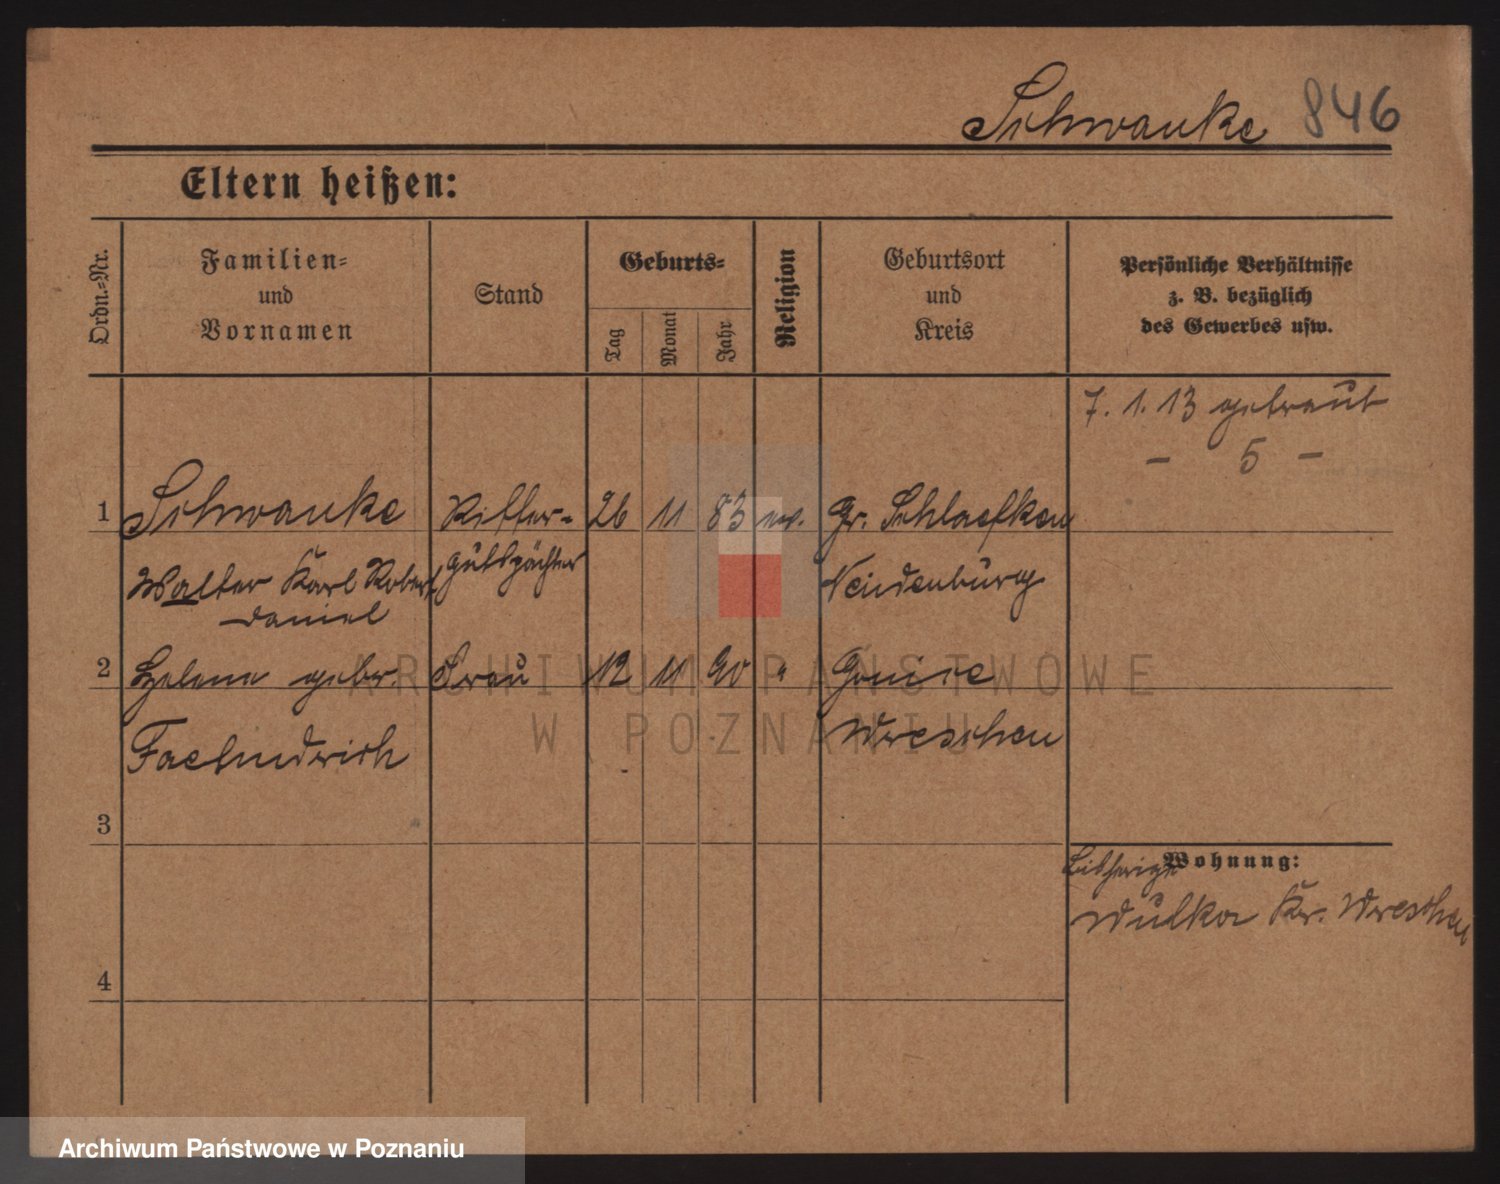 Schwanke 846
Eltern heißen:
Ordn.-Nr.
Familien-
und
Vornamen
Stand
Geburts-
Tag
Monat
Jahr
Religion
Geburtsort
und
Kreis
Persönliche Verhältnisse
z. B. bezüglich
des Gewerbes usw.
7. 1. 13 getraut
- 5 -
1 Schwanke Ritter- 26 11 83 ev. Gr. Schlaefken
Walter Karl Robert gutspächter Neidenburg
Daniel
2 Helene gebr. Frau 12 11 90 " Gonice
Wreschen
3
Wohnung:
Bisherige
Kr. Wreschen
4
ARCHIWUM PAŃSTWOWE
W POZNANIU
Archiwum Państwowe w Poznaniu